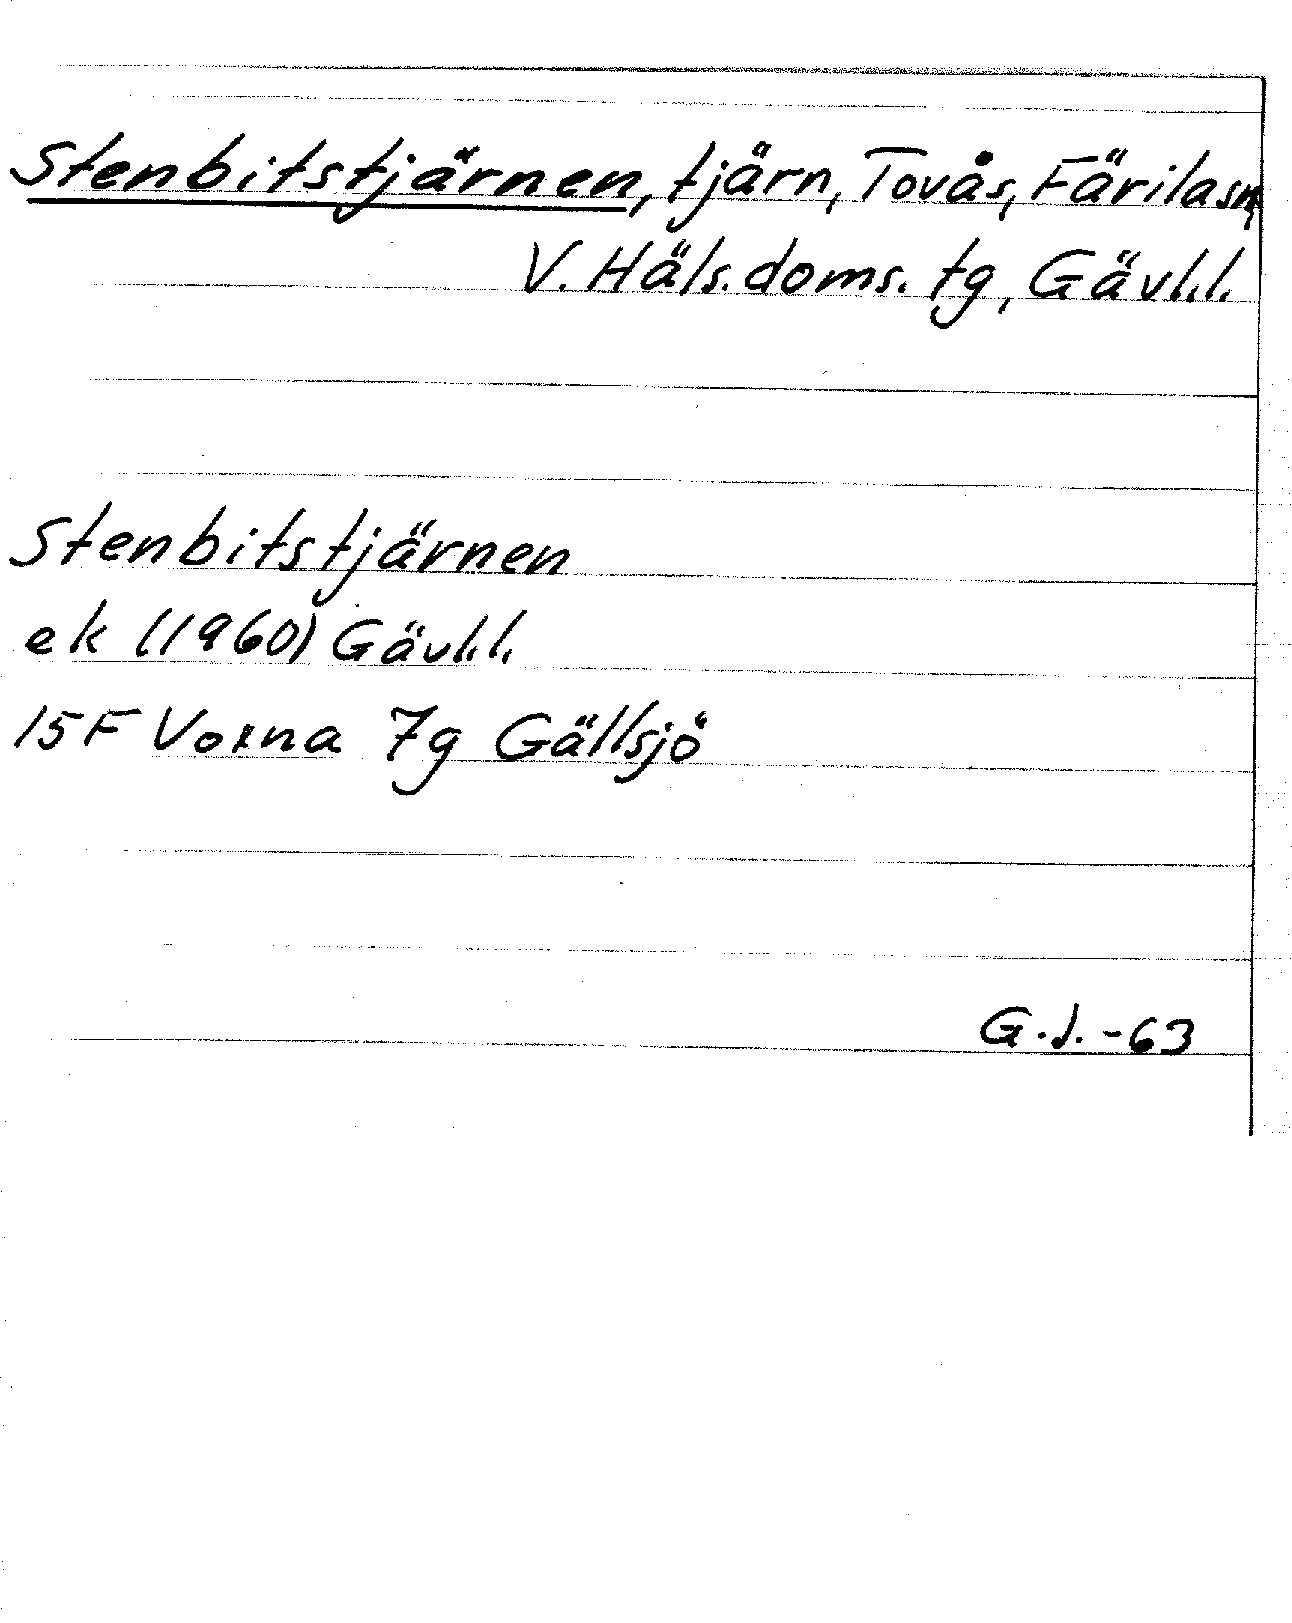 Stenbitstjärnen, tjärn, Tovås, Färila sn,
V. Häls. doms. tg, Gävl. l.
Stenbitstjärnen
ek (1960) Gävl. l.
15F Voxna 7g Gällsjö
G.J. -63